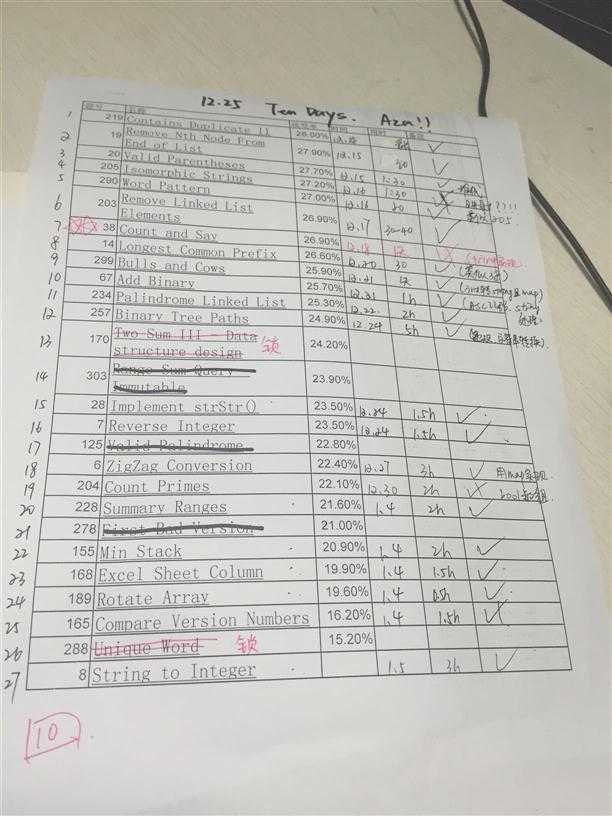 12.25 Ten Days. Aza!!
题号 名称 通过率 时间 用时 备注
1 219 Contains Duplicate II 28.00%
2 19 Remove Nth Node From End of List 27.90% 12.15
3 20 Valid Parentheses 27.70% 12.15 30 ✓
4 205 Isomorphic Strings 27.20% 1:30 ✓
5 290 Word Pattern 27.00% 12.16
6 203 Remove Linked List Elements 26.90% 12.17 30-40 ✓
7 38 Count and Say 26.90% 12.18
8 14 Longest Common Prefix 26.60% 12.20 30 ✓
9 299 Bulls and Cows 25.90% 12.21 ✓
10 67 Add Binary 25.70% 12.21 1h ✓
11 234 Palindrome Linked List 25.30% 12.22 2h ✓
12 257 Binary Tree Paths 24.90% 12.24 5h ✓
13 170 Two Sum III - Data structure design 锁 24.20%
14 303 Range Sum Query Immutable 23.90%
15 28 Implement strStr() 23.50% 12.24 1.5h ✓
16 7 Reverse Integer 23.50% 12.24 1.5h ✓
17 125 Valid Palindrome 22.80%
18 6 ZigZag Conversion 22.40% 12.27 3h ✓ 用map实现
19 204 Count Primes 22.10% 12.30 2h bool数组
20 228 Summary Ranges 21.60% 1.4 2h ✓
21 278 First Bad Version 21.00%
22 155 Min Stack 20.90% 1.4 2h ✓
23 168 Excel Sheet Column 19.90% 1.4 1.5h ✓
24 189 Rotate Array 19.60% 1.4 0.5h ✓
25 165 Compare Version Numbers 16.20% 1.4 1.5h ✓
26 288 Unique Word 锁 15.20%
27 8 String to Integer 1.5 3h ✓
10